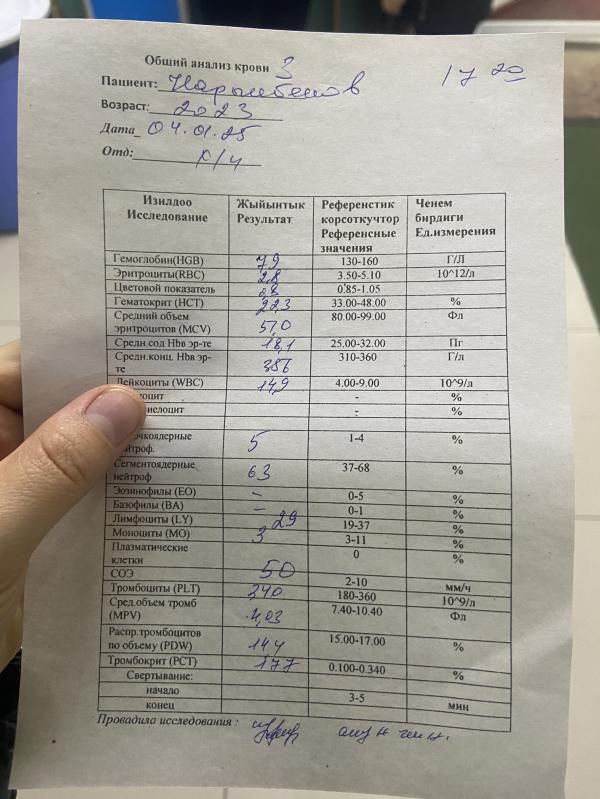 Общий анализ крови 3
17 20
Пациент: Нарынбеков
Возраст: 2023
Дата 04.01.25
Отд: р/ч
Изилдоо Исследование Жыйынтык Результат Референстик корсоткучтор Референсные значения Ченем бирдиги Ед.измерения
Гемоглобин(HGB) 79 130-160 Г/Л
Эритроциты(RBC) 2.8 3.50-5.10 10^12/л
Цветовой показатель 0.8 0.85-1.05
Гематокрит (HCT) 22,3 33.00-48.00 %
Средний объем эритроцитов (MCV) 57,0 80.00-99.00 Фл
Средн.сод Hbв эр-те 18,1 25.00-32.00 Пг
Средн.конц. Hbв эр-те 356 310-360 Г/л
Лейкоциты (WBC) 14,9 4.00-9.00 10^9/л
оцит - %
иелоцит - %
чкоядерные нейтроф. 5 1-4 %
Сегментоядерные нейтроф 63 37-68 %
Эозинофилы (EO) – 0-5 %
Базофилы (BA) – 0-1 %
Лимфоциты (LY) 29 19-37 %
Моноциты (MO) 3 3-11 %
Плазматические клетки 0 %
СОЭ 50 2-10 мм/ч
Тромбоциты (PLT) 340 180-360 10^9/л
Сред.объем тромб (MPV) 7.40-10.40 Фл
Распр.тромбоцитов по объему (PDW) 144 15.00-17.00 %
Тромбокрит (PCT) 177 0.100-0.340 %
Свертывание:
начало 3-5 мин
конец
Провадила исследования :